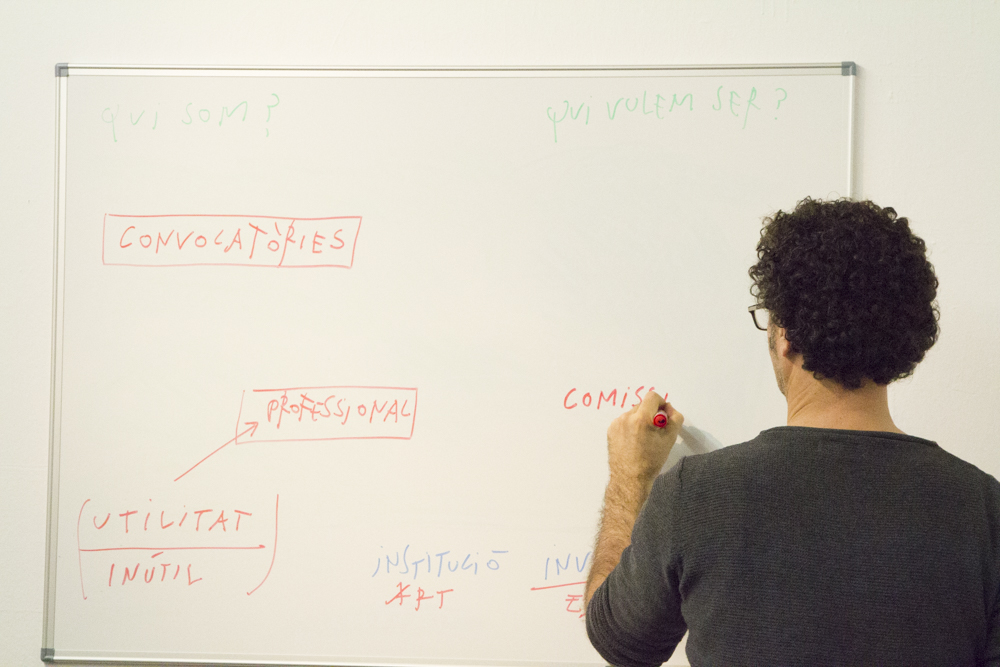 QUI SOM?
QUI VOLEM SER?
CONVOCATÒRIES
PROFESSIONAL
COMISS
UTILITAT
INÚTIL
INSTITUCIÓ
ART
INV